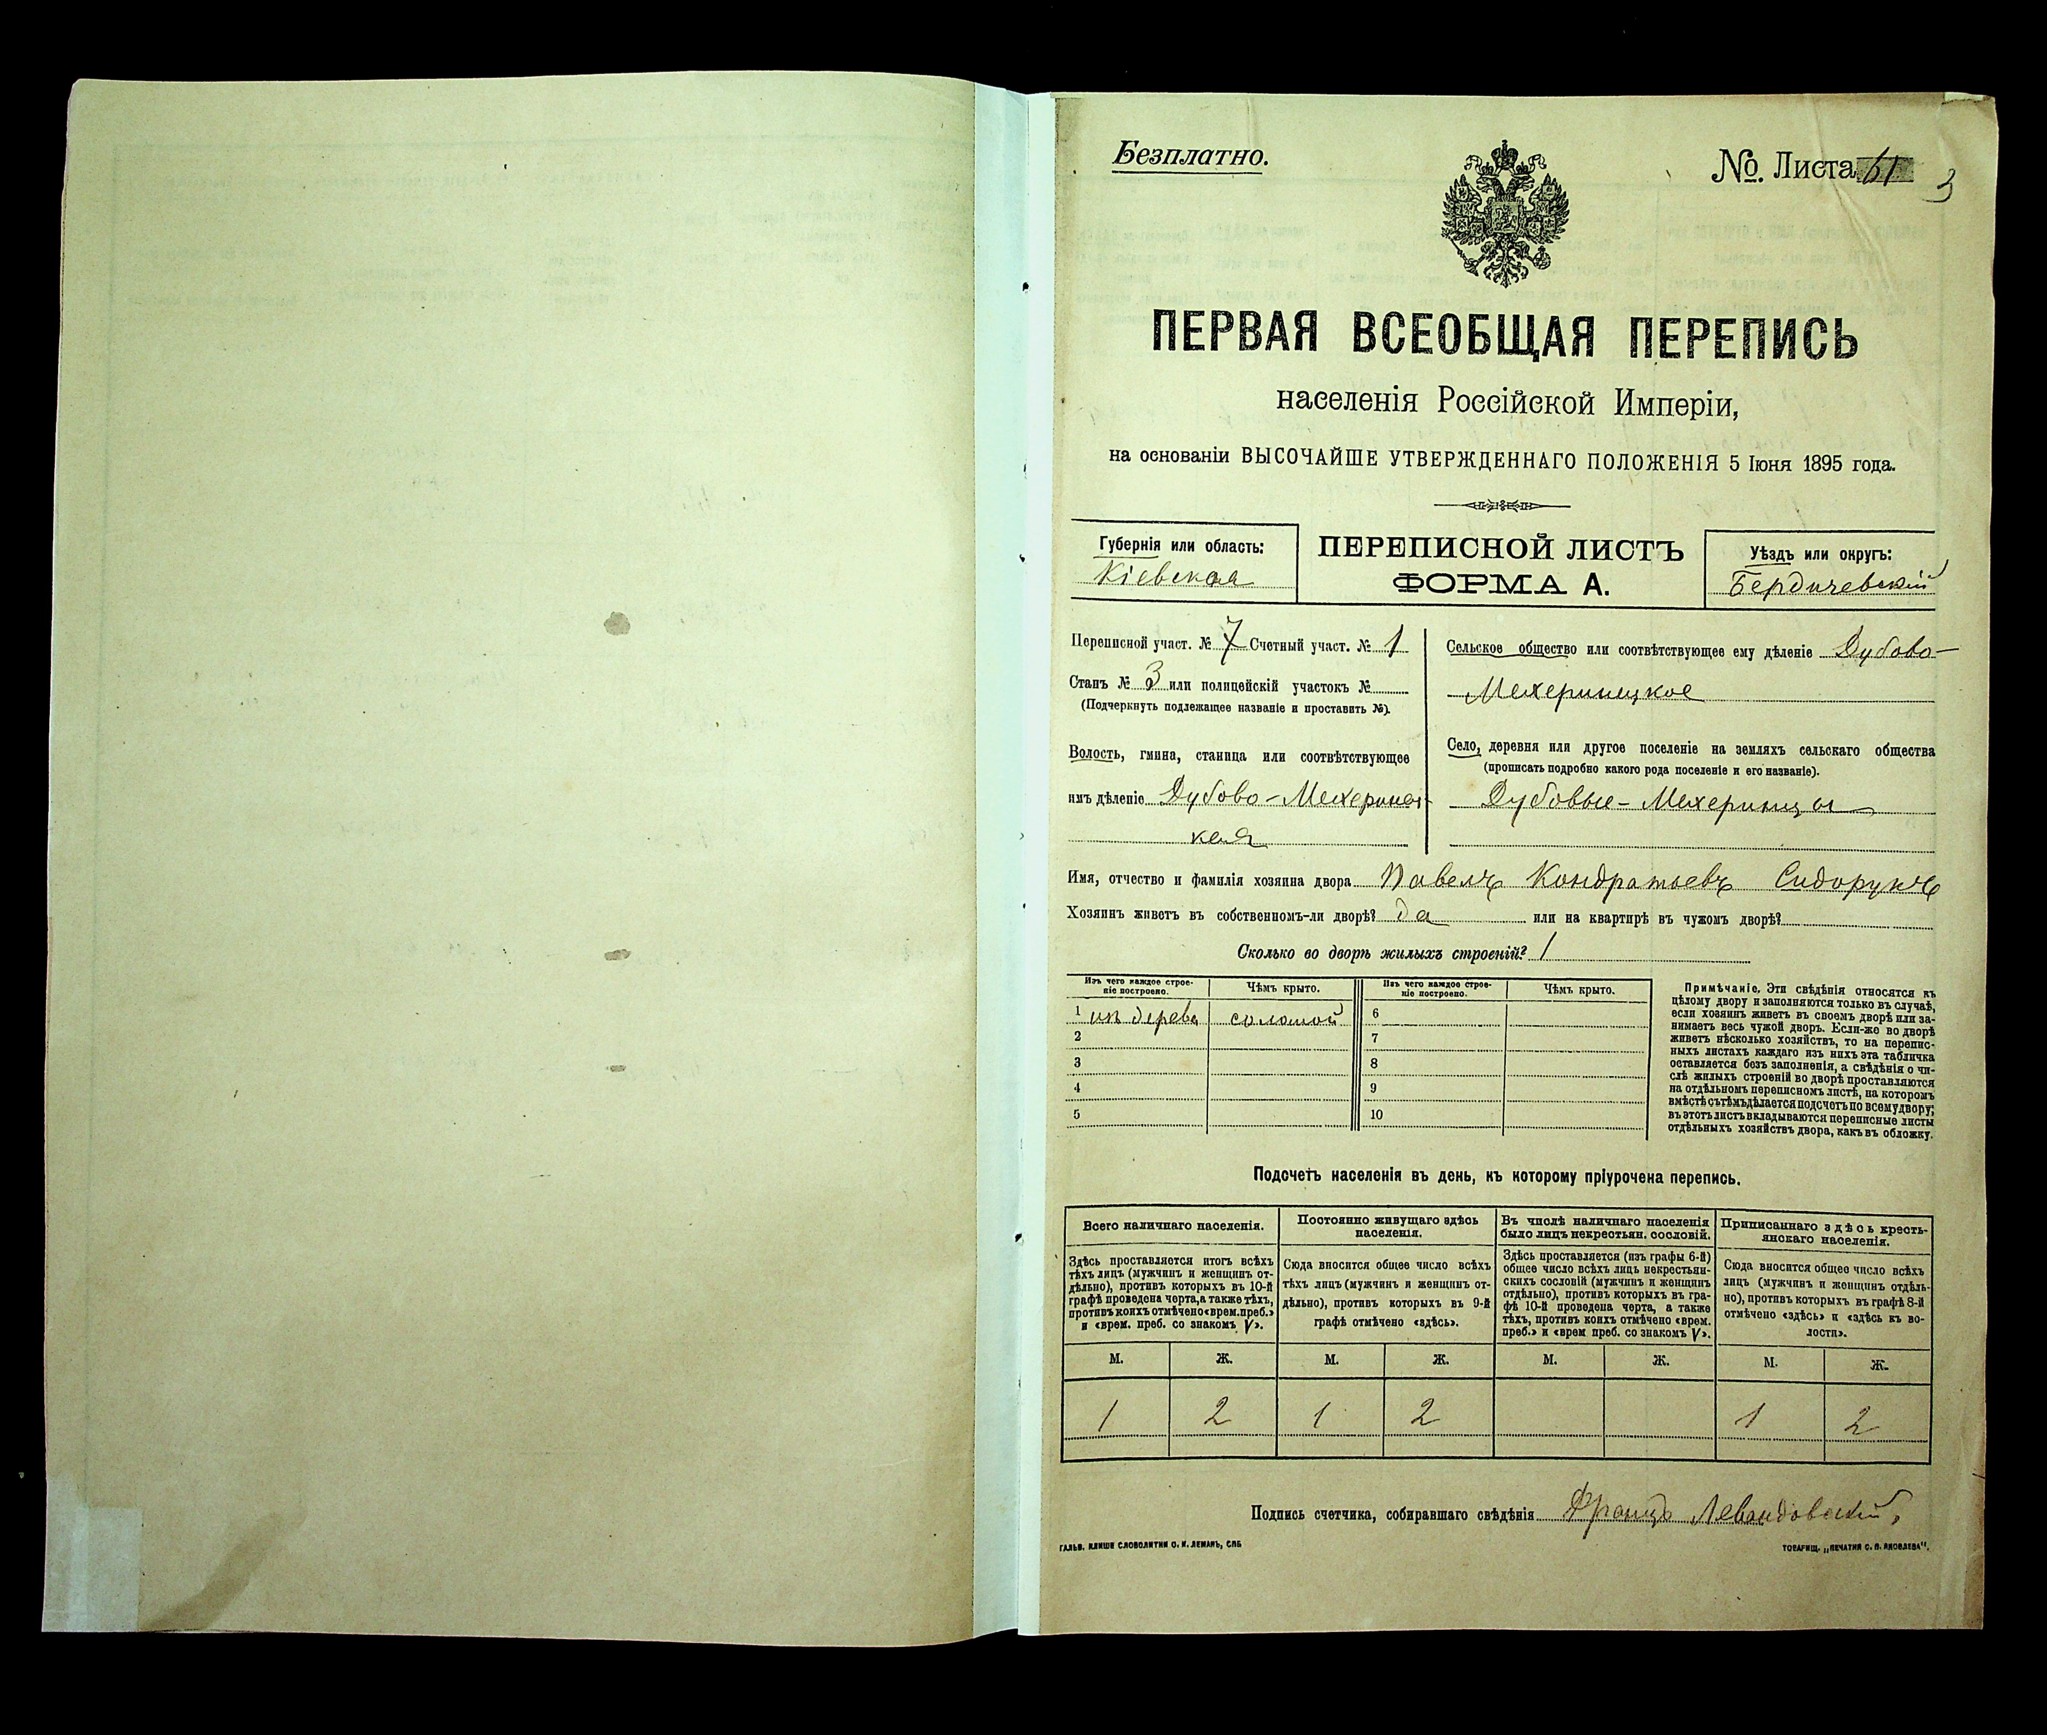 Безплатно.
№. Листа 61
3
ПЕРВАЯ ВСЕОБЩАЯ ПЕРЕПИСЬ
населенія Россійской Имперіи,
на основаніи ВЫСОЧАЙШЕ УТВЕРЖДЕННАГО ПОЛОЖЕНІЯ 5 Іюня 1895 года.
Губернія или область:
Кіевская
ПЕРЕПИСНОЙ ЛИСТЪ
ФОРМА А.
Уѣздъ или округъ:
Бердичевскій
Переписной участ. № 7 Счетный участ. № 1
Станъ № 3 или полицейскій участокъ №
(Подчеркнуть подлежащее названіе и проставить №).
Волость, гмина, станица или соотвѣтствующее
имъ дѣленіе Дубово-Мехеринец-
кая
Сельское общество или соотвѣтствующее ему дѣленіе Дубово-
Мехеринецкое
Село, деревня или другое поселеніе на земляхъ сельскаго общества
(прописать подробно какого рода поселеніе и его названіе).
Дубовые-Мехеринцы
Имя, отчество и фамилія хозяина двора Павелъ Кондратьевъ Сидорукъ
Хозяинъ живетъ въ собственномъ-ли дворѣ? да или на квартирѣ въ чужомъ дворѣ?
Сколько во дворѣ жилыхъ строеній? 1
Изъ чего каждое строе-
ніе построено.
Чѣмъ крыто.
Изъ чего каждое строе-
ніе построено.
Чѣмъ крыто.
1 изъ дерева соломой 6
2 7
3 8
4 9
5 10
Примѣчаніе. Эти свѣдѣнія относятся къ
цѣлому двору и заполняются только въ случаѣ,
если хозяинъ живетъ въ своемъ дворѣ или за-
нимаетъ весь чужой дворъ. Если-же во дворѣ
живетъ нѣсколько хозяйствъ, то на перепис-
ныхъ листахъ каждаго изъ нихъ эта табличка
оставляется безъ заполненія, а свѣдѣнія о чи-
слѣ жилыхъ строеній во дворѣ проставляются
на отдѣльномъ переписномъ листѣ, на которомъ
вмѣстѣ съ тѣмъ дѣлается подсчетъ по всему двору;
въ этотъ листъ вкладываются переписные листы
отдѣльныхъ хозяйствъ двора, какъ въ обложку.
Подсчетъ населенія въ день, къ которому пріурочена перепись.
Всего наличнаго населенія.
Здѣсь проставляется итогъ всѣхъ
тѣхъ лицъ (мужчинъ и женщинъ от-
дѣльно), противъ которыхъ въ 10-й
графѣ проведена черта, а также тѣхъ,
противъ коихъ отмѣчено «врем. преб.»
и «врем. преб. со знакомъ V».
Постоянно живущаго здѣсь
населенія.
Сюда вносится общее число всѣхъ
тѣхъ лицъ (мужчинъ и женщинъ от-
дѣльно), противъ которыхъ въ 9-й
графѣ отмѣчено «здѣсь».
Въ числѣ наличнаго населенія
было лицъ некрестьян. сословій.
Здѣсь проставляется (изъ графы 6-й)
общее число всѣхъ лицъ некрестьян-
скихъ сословій (мужчинъ и женщинъ
отдѣльно), противъ которыхъ въ гра-
фѣ 10-й проведена черта, а также
тѣхъ, противъ коихъ отмѣчено «врем.
преб.» и «врем преб. со знакомъ V».
Приписаннаго здѣсь кресть-
янскаго населенія.
Сюда вносится общее число всѣхъ
лицъ (мужчинъ и женщинъ отдѣль-
но), противъ которыхъ въ графѣ 8-й
отмѣчено «здѣсь» и «здѣсь къ во-
лости».
М. Ж. М. Ж. М. Ж. М. Ж.
1 2 1 2 1 2
Подпись счетчика, собиравшаго свѣдѣнія Францъ Левандовскій.
ГАЛЬВ. КЛИШЕ СЛОВОЛИТНИ О. И. ЛЕМАНЪ, СПБ
ТОВАРИЩ. „ПЕЧАТНЯ С. П. ЯКОВЛЕВА".